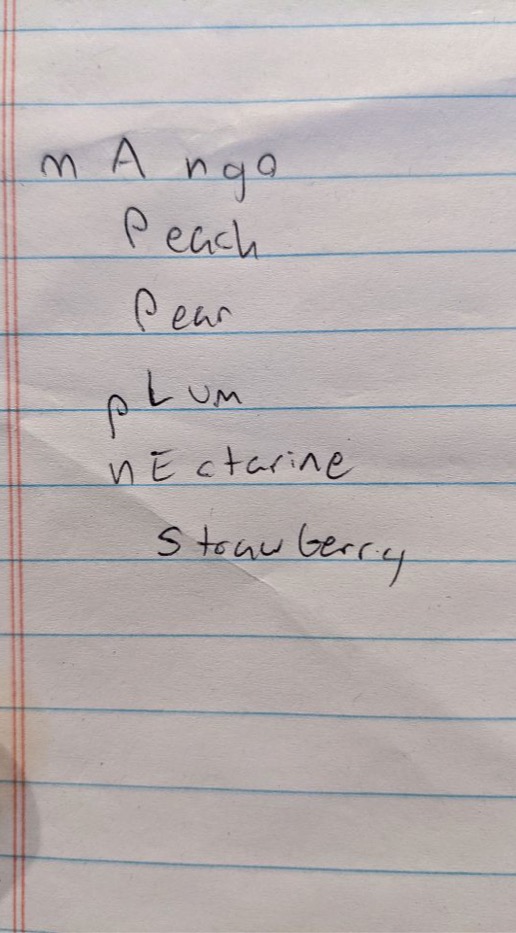 mAngo
Peach
Pear
pLum
nEctarine
Strawberry